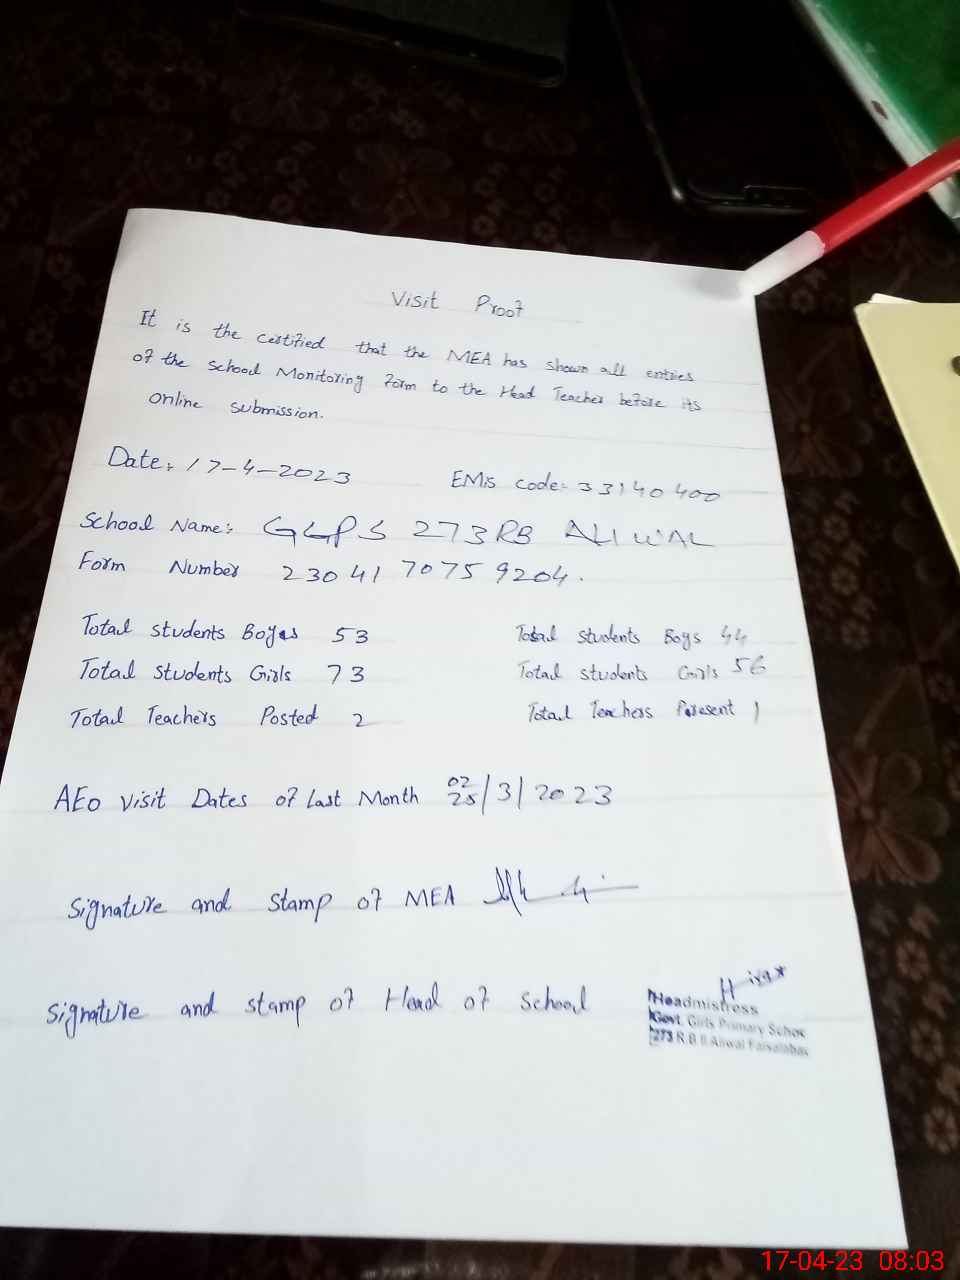 Visit Proof
It is the certified that the MEA has shown all entries
of the school Monitoring Form to the Head Teacher before its
online submission.
Date: 17-4-2023 EMis code:- 33140400
School Name:- GGPS 273RB ALIWAL
Form Number 2304170759204.
Total students Boyes 53 Total students Boys 44
Total students Girls 73 Total students Girls 56
Total Teachers Posted 2 Total Teachers Present 1
AEo visit Dates of last Month 02
25/3/2023
Signature and stamp of MEA
Signature and stamp of Head of School
Headmistress
Govt. Girls Primary Schoo
273 R.B II Aliwal Faisalabad
17-04-23 08:03